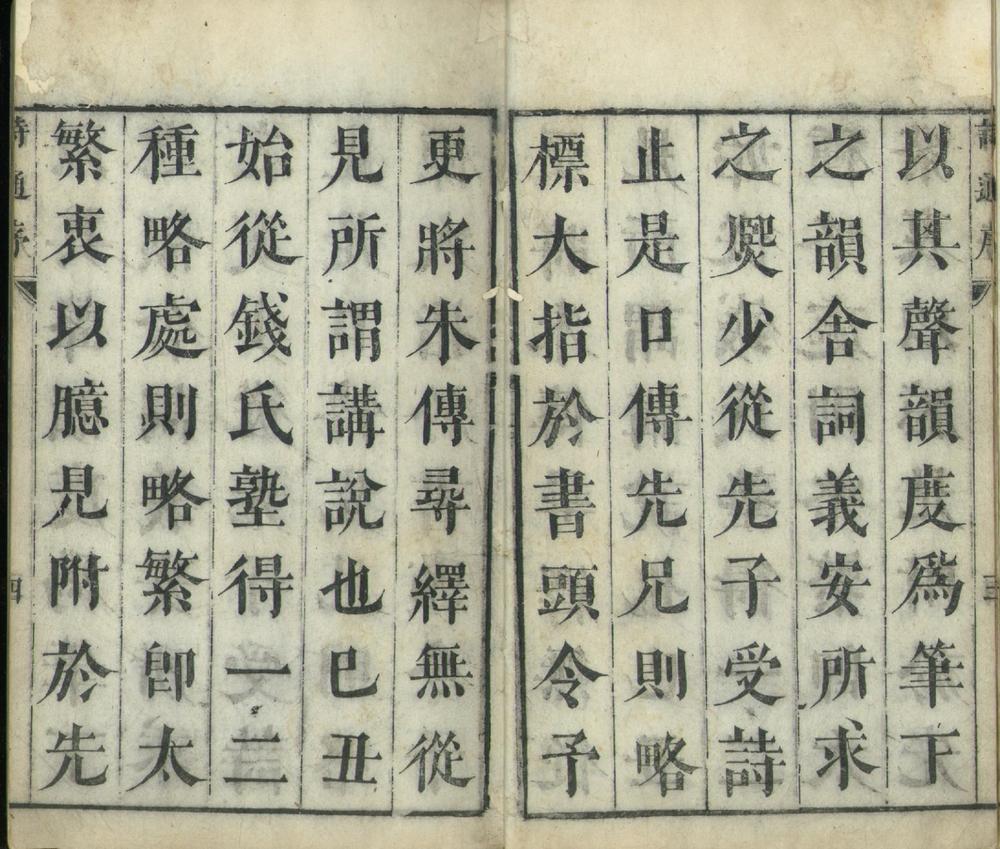 以其聲韻度為筆下
之韻舍詞義安所求
之爕少從先子受詩
止是口傳先兄則略
標大指於書頭令予
更將朱傳尋繹無從
見所謂講說也巳丑
始從錢氏塾得一二
種略處則略繁卽太
繁衷以臆見附於先
詩通序
四